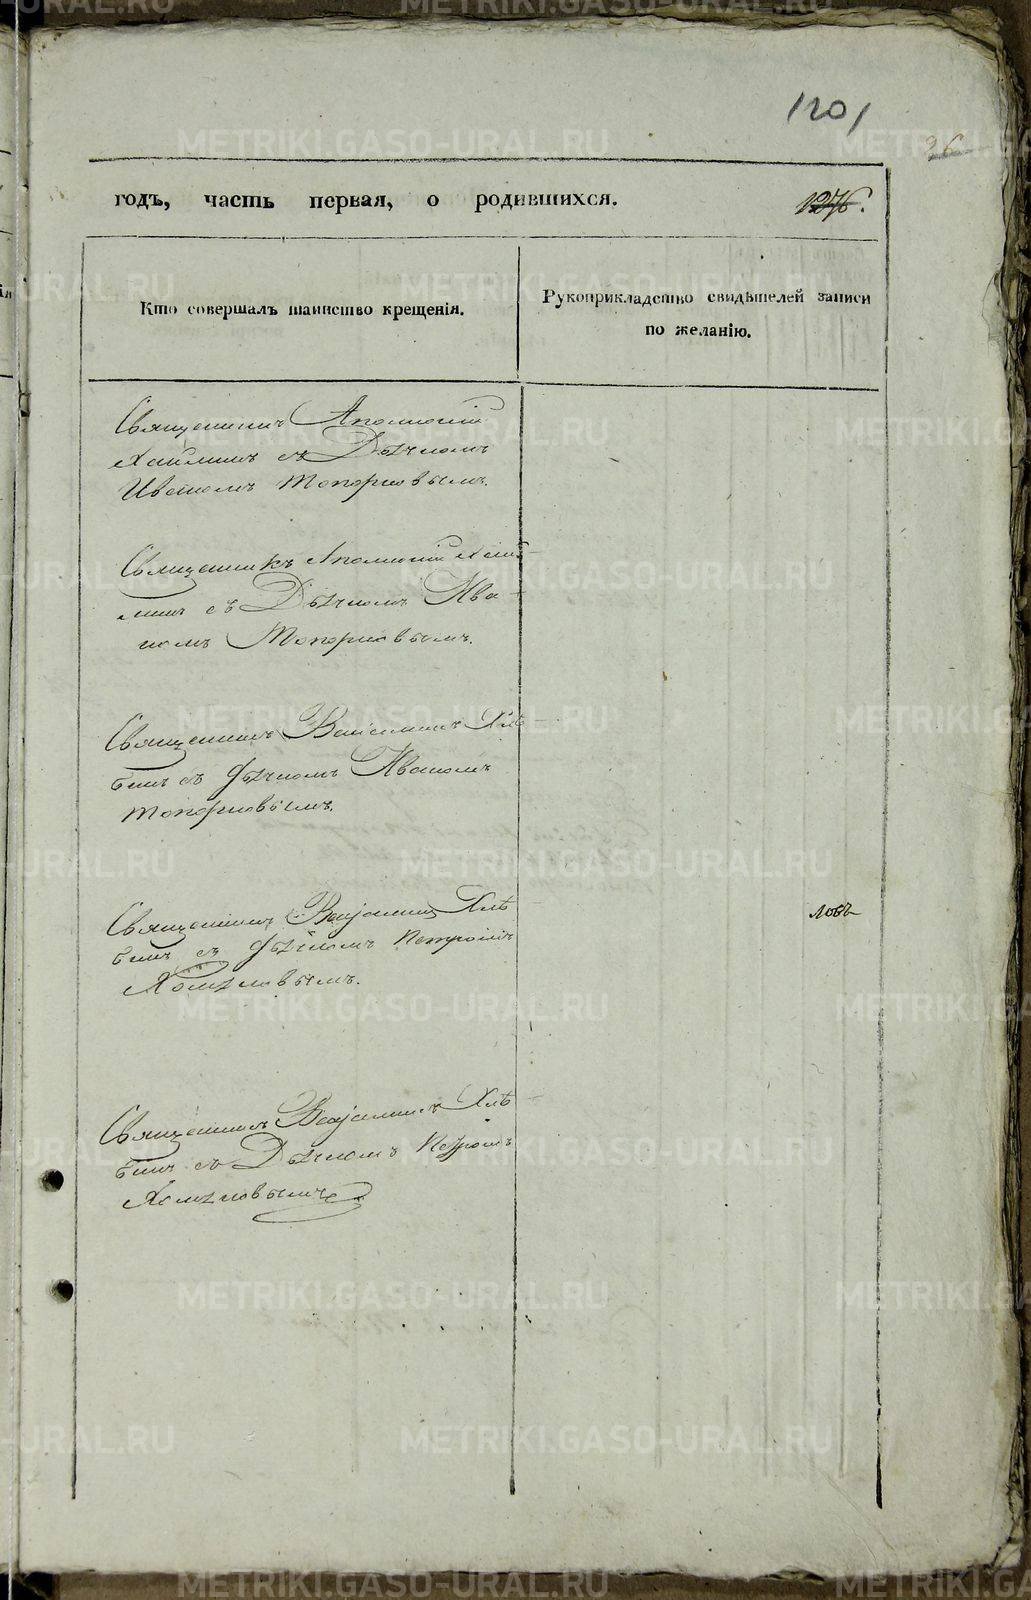 1201
26
годъ, часть первая, о родившихся.
1276.
Кто совершалъ таинство крещенія.
Рукоприкладство свидѣтелей записи
по желанію.
Священникъ Аполоній
Хайминъ съ Дьячкомъ
Иваномъ Топорковымъ.
Священникъ Аполоній Хай-
минъ съ Дьячкомъ Ива-
номъ Топорковымъ.
Священникъ Веніаминъ Хлѣ-
бинъ съ Дьячкомъ Иваномъ
Топорковымъ.
Священникъ Веніаминъ Хлѣ-
бинъ съ Дьячкомъ Петромъ
ловъ
Священникъ Веніаминъ Хлѣ-
бинъ съ Дьячкомъ Петромъ
METRIKI.GASO-URAL.RU